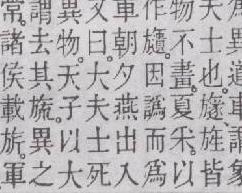 異道車謂象
夫士也旞旌皆
物不畫夏采以
作旞因譌而為
車朝夕燕出入
文曰大夫士死
異物天子以大
謂去其旒異之
常諸侯載旂軍